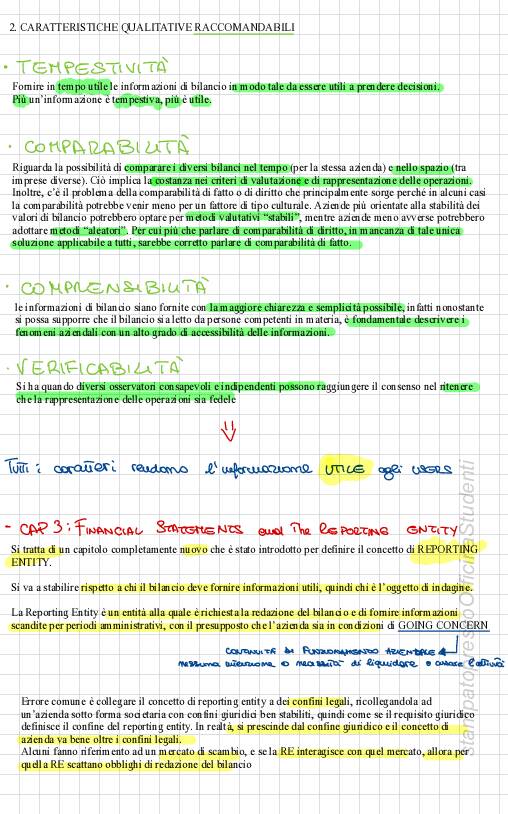 2. CARATTERISTICHE QUALITATIVE RACCOMANDABILI
• TEMPESTIVITÀ
Fornire in tempo utile le informazioni di bilancio in modo tale da essere utili a prendere decisioni.
Più un'informazione è tempestiva, più è utile.
• COMPARABILITÀ
Riguarda la possibilità di comparare i diversi bilanci nel tempo (per la stessa azienda) e nello spazio (tra
imprese diverse). Ciò implica la costanza nei criteri di valutazione e di rappresentazione delle operazioni.
Inoltre, c'è il problema della comparabilità di fatto o di diritto che principalmente sorge perché in alcuni casi
la comparabilità potrebbe venir meno per un fattore di tipo culturale. Aziende più orientate alla stabilità dei
valori di bilancio potrebbero optare per metodi valutativi "stabili", mentre aziende meno avverse potrebbero
adottare metodi "aleatori". Per cui più che parlare di comparabilità di diritto, in mancanza di tale unica
soluzione applicabile a tutti, sarebbe corretto parlare di comparabilità di fatto.
• COMPRENSIBILITÀ
le informazioni di bilancio siano fornite con la maggiore chiarezza e semplicità possibile, infatti nonostante
si possa supporre che il bilancio sia letto da persone competenti in materia, è fondamentale descrivere i
fenomeni aziendali con un alto grado di accessibilità delle informazioni.
• VERIFICABILITÀ
Si ha quando diversi osservatori consapevoli e indipendenti possono raggiungere il consenso nel ritenere
che la rappresentazione delle operazioni sia fedele
Tutti i caratteri rendono l'informazione UTILE agli USERS
- CAP 3: FINANCIAL STATEMENTS and The REPORTING ENTITY
Si tratta di un capitolo completamente nuovo che è stato introdotto per definire il concetto di REPORTING
ENTITY.
Si va a stabilire rispetto a chi il bilancio deve fornire informazioni utili, quindi chi è l'oggetto di indagine.
La Reporting Entity è un entità alla quale è richiesta la redazione del bilancio e di fornire informazioni
scandite per periodi amministrativi, con il presupposto che l'azienda sia in condizioni di GOING CONCERN
CONTINUITÀ DI FUNZIONAMENTO AZIENDALE
nessuna intenzione o necessità di liquidare o cessare l'attività
Errore comune è collegare il concetto di reporting entity a dei confini legali, ricollegandola ad
un'azienda sotto forma societaria con confini giuridici ben stabiliti, quindi come se il requisito giuridico
definisce il confine del reporting entity. In realtà, si prescinde dal confine giuridico e il concetto di
azienda va bene oltre i confini legali.
Alcuni fanno riferimento ad un mercato di scambio, e se la RE interagisce con quel mercato, allora per
quella RE scattano obblighi di redazione del bilancio
stampato presso Officina Studenti